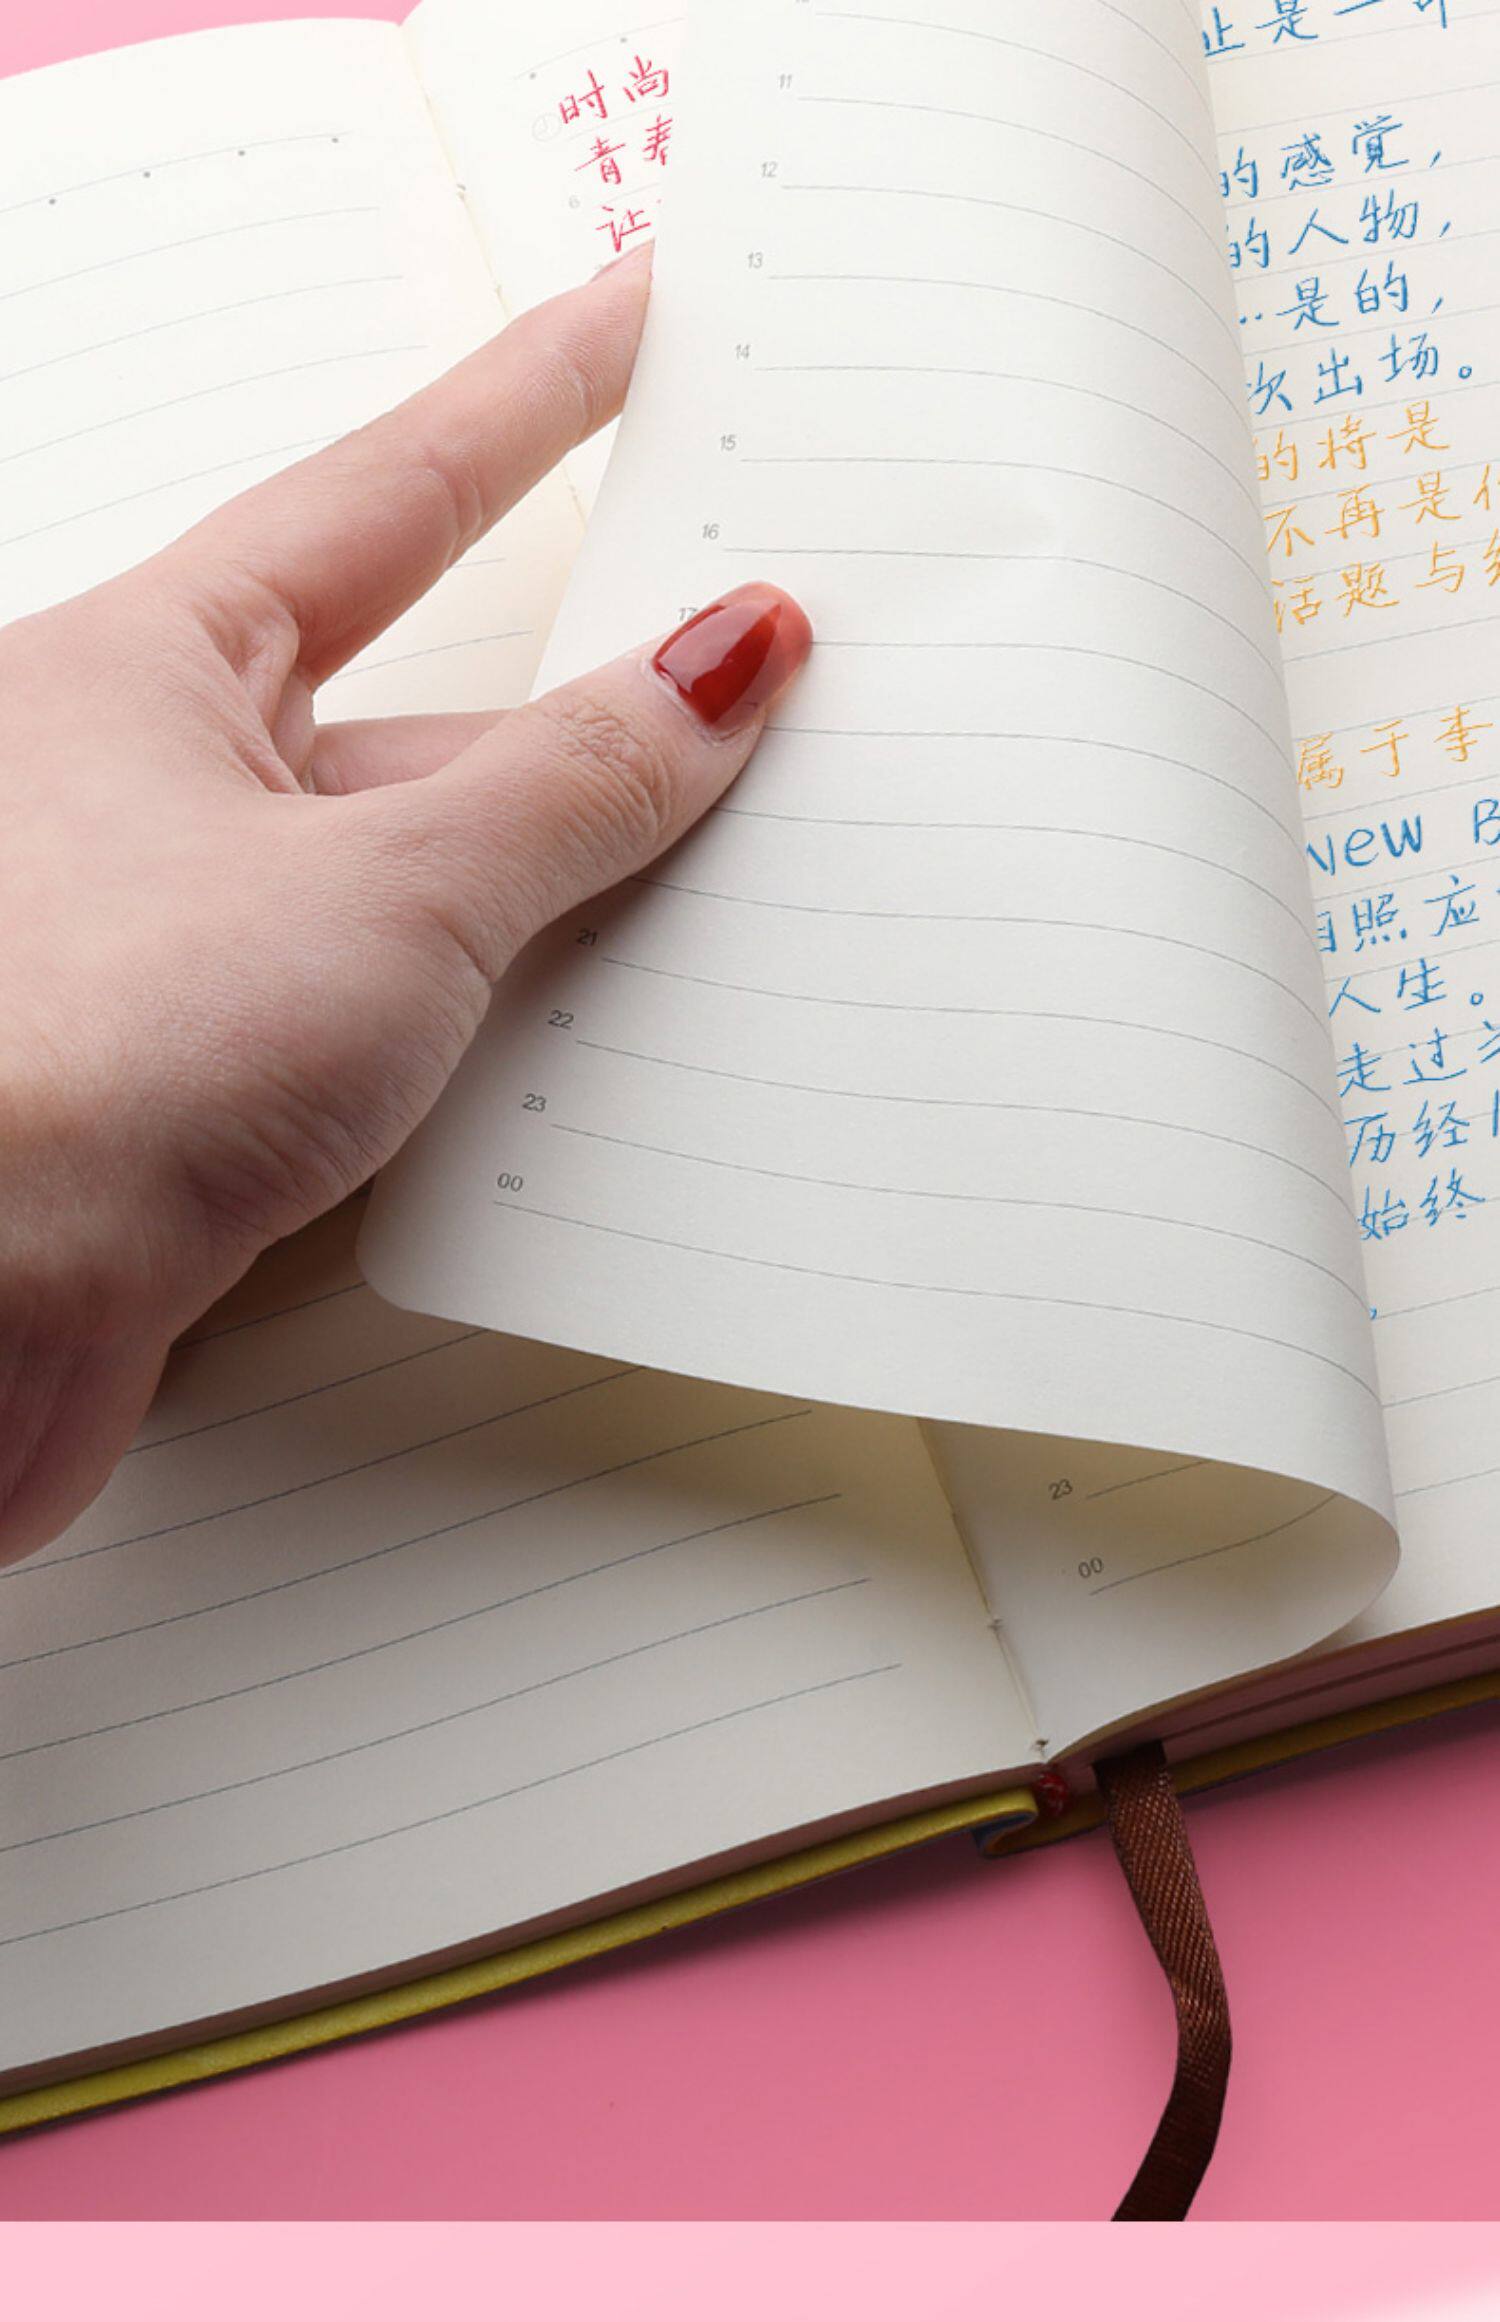 时尚
青春
让
6
11
12
13
14
15
16
17
21
22
23
00
23
00
止是一
的感觉,
的人物,
..是的,
次出场。
的将是
不再是
话题与
属于李
New B
照应
人生。
走过
历经
始终
,